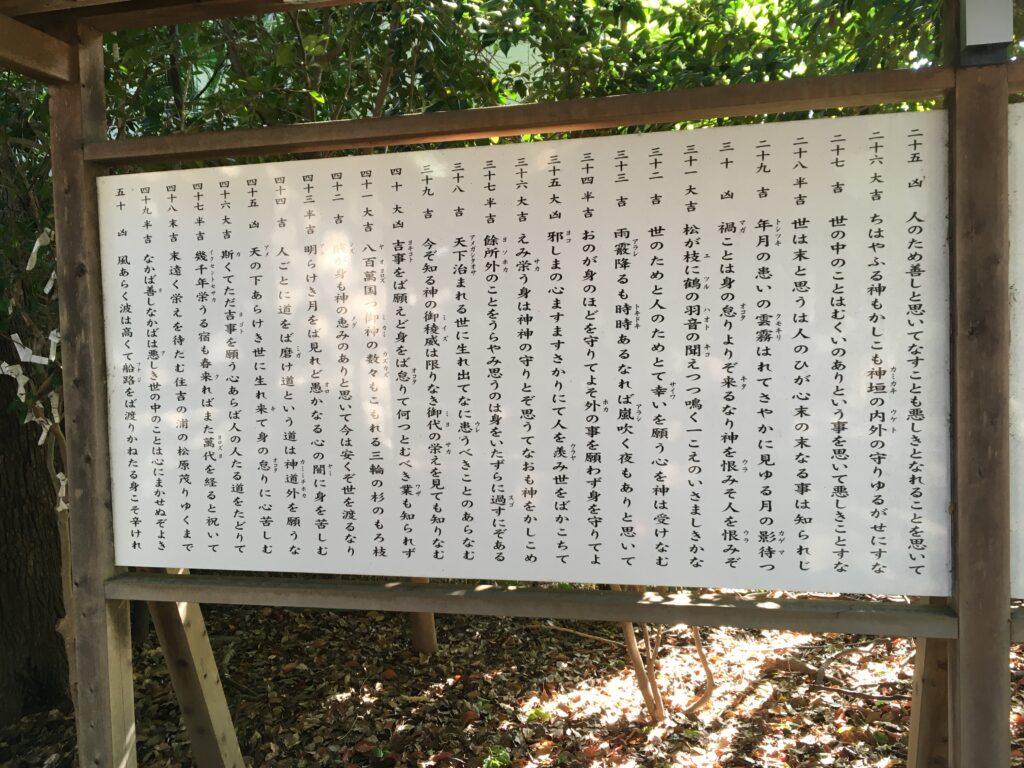 二十五 凶 人のため善しと思いてなすことも悪しきとなれることを思いて
二十六 大吉 ちはやふる神もかしこも神垣の内外の守りゆるがせにすな
二十七 吉 世の中のことはむくいのありという事を思いて悪しきことすな
二十八 半吉 世は末と思うは人のひが心末の末なる事は知られじ
二十九 吉 年月の患いの雲霧はれてさやかに見ゆる月の影待つ
三十 凶 禍ことは身の怠りよりぞ来るなり神を恨みそ人を恨みぞ
三十一 大吉 松が枝に鶴の羽音の聞えつつ鳴く一こえのいさましきかな
三十二 吉 世のためと人のためとて幸いを願う心を神は受けなむ
三十三 吉 雨霰降るも時時あるなれば嵐吹く夜もありと思いて
三十四 半吉 おのが身のほどを守りてよそ外の事を願わず身を守りてよ
三十五 大凶 邪しまの心ますますさかりにて人を羨み世をばかこちて
三十六 大吉 えみ栄う身は神神の守りとぞ思うてなおも神をかしこめ
三十七 半吉 餘所外のことをうらやみ思うのは身をいたずらに過すにぞある
三十八 吉 天下治まれる世に生れ出てなに患うべきことのあらなむ
三十九 吉 今ぞ知る神の御稜威は限りなき御代の栄えを見ても知りなむ
四十 大凶 吉事をば願えど身をば怠りて何つとむべき業も知られず
四十一 大吉 八百萬国つ御神の数々もこもれる三輪の杉のもろ枝
四十二 吉 が身も神の恵みのありと思いて今は安くぞ世を渡るなり
四十三 半吉 明らけき月をば見れど愚かなる心の闇に身を苦しむ
四十四 吉 人ごとに道をば磨け道という道は神道外を願うな
四十五 凶 天の下あらけき世に生れ来て身の怠りに心苦しむ
四十六 大吉 斯くてただ吉事を願う心あらば人の人たる道をたどりて
四十七 半吉 幾千年栄うる宿も春来ればまた萬代を経ると祝いて
四十八 末吉 末遠く栄えを待たむ住吉の浦の松原茂りゆくまで
四十九 半吉 なかば善しなかばは悪しき世の中のことは心にまかせぬぞよき
五十 凶 風あらく波は高くて船路をば渡りかねたる身こそ辛けれ